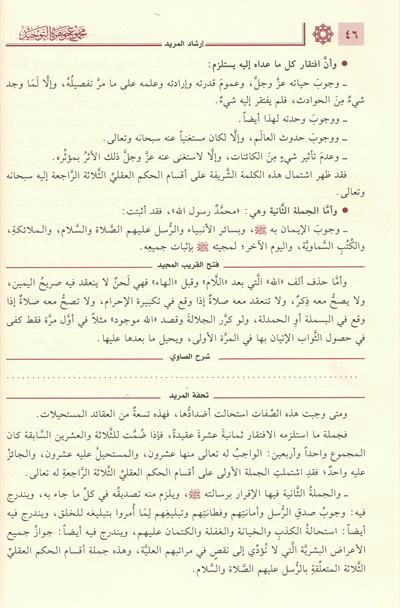 ٤٦
مجموع جوهرة التوحيد
إرشاد المريد
• وأنَّ افتقار كل ما عداه إليه يستلزم:
ـ وجوبَ حياته عزَّ وجلَّ، وعمومَ قدرته وإرادته وعلمه على ما مرَّ تفصيلُهُ، وإلَّا لَمَا وجد
شيءٌ مِنَ الحوادث، فلم يفتقر إليه شيءٌ.
ـ ووجوبَ وحدته لهذا أيضاً.
ـ ووجوبَ حدوث العالَم، وإلَّا لكان مستغنياً عنه سبحانه وتعالى.
ـ وعدمَ تأثير شيءٍ مِنَ الكائنات، وإلَّا لاستغنى عنه عزَّ وجلَّ ذلك الأثرُ بمؤثِّره.
فقد ظهر اشتمال هذه الكلمة الشَّريفة على أقسام الحكم العقليِّ الثَّلاثة الرَّاجعة إليه سبحانه
وتعالى.
• وأمَّا الجملة الثَّانية وهي: «محمَّدٌ رسول الله»، فقد أثبتت:
ـ وجوبَ الإيمان به ﷺ، وبسائر الأنبياء والرُّسل عليهم الصَّلاة والسَّلام، والملائكةِ،
والكُتُبِ السَّماويَّة، واليوم الآخر؛ لمجيئه ﷺ بإثبات جميعِه.
فتح القريب المجيد
وأما حذف ألف «الله» الَّتي بعد «اللَّام» وقبل «الهاء» فهي لَحنٌ لا ينعقد فيه صريحُ اليمين،
ولا يصحُّ معه ذِكرٌ، ولا تنعقد معه صلاةٌ إذا وقع في تكبيرة الإحرام، ولا تصحُّ معه صلاةٌ إذا
وقع في البسملة أو الحمدلة، ولو كرَّر الجلالةَ وقصد «الله موجود» مثلاً في أوَّل مرَّة فقط كفى
في حصول الثَّواب الإتيان بها في المرَّة الأولى، ويحيل ما بعدها عليها.
شرح الصاوي
تحفة المريد
ومتى وجبت هذه الصِّفات استحالت أضدادُها، فهذه تسعةٌ من العقائد المستحيلات.
فجملة ما استلزمه الافتقار ثمانيةَ عشرةَ عقيدةً، فإذا ضُمَّت للثَّلاثة والعشرين السَّابقة كان
المجموع واحداً وأربعين: الواجبُ له تعالى منها عشرون، والمستحيلُ عليه عشرون، والجائزُ
عليه واحدٌ؛ فقدِ اشتملتِ الجملة الأولى على أقسام الحكم العقليِّ الثَّلاثة الرَّاجعةِ له تعالى.
ـ والجملةُ الثَّانية فيها الإقرار برسالته ﷺ، ويلزم منه تصديقُه في كلِّ ما جاء به، ويندرج
فيه: وجوبُ صدقِ الرُّسل وأمانتِهم وفطانتِهم وتبليغِهم لِمَا أُمروا بتبليغه للخلق، ويندرج فيه
أيضاً: استحالةُ الكذبِ والخيانة والغفلة والكتمان عليهم، ويندرج فيه أيضاً: جوازُ جميع
الأعراض البشريَّة الَّتي لا تُؤدِّي إلى نقصٍ في مراتبهم العليَّة، وهذه جملة أقسام الحكم العقليِّ
الثَّلاثة المتعلِّقةِ بالرُّسل عليهم الصَّلاة والسَّلام.